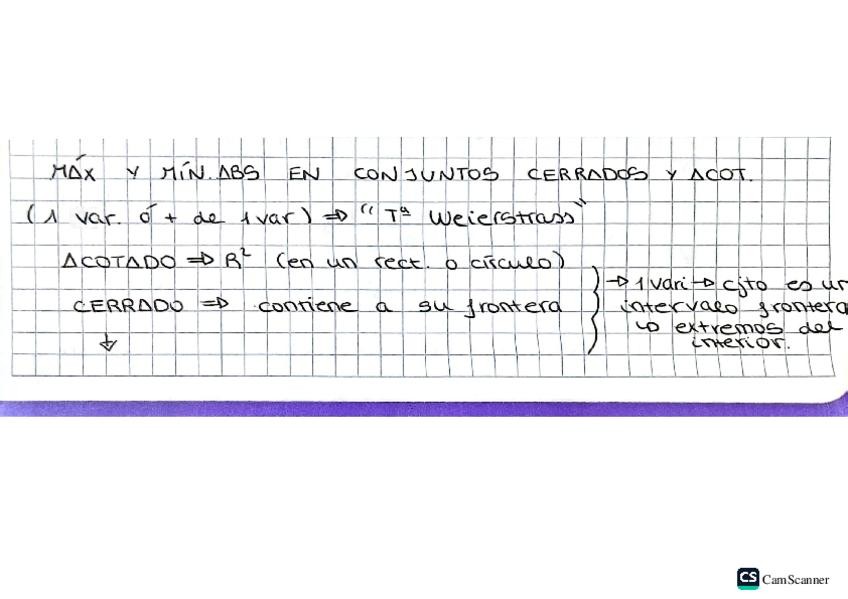 MÁX Y MÍN. ABS EN CONJUNTOS CERRADOS Y ACOT.
(1 var. ó + de 1 var) ⇒ "Tª Weierstrass"
ACOTADO ⇒ R² (en un rect. o círculo)
CERRADO ⇒ contiene a su frontera
↓
→ 1 vari → cjto es un
intervalo frontera
↳ extremos del
interior.
CS CamScanner